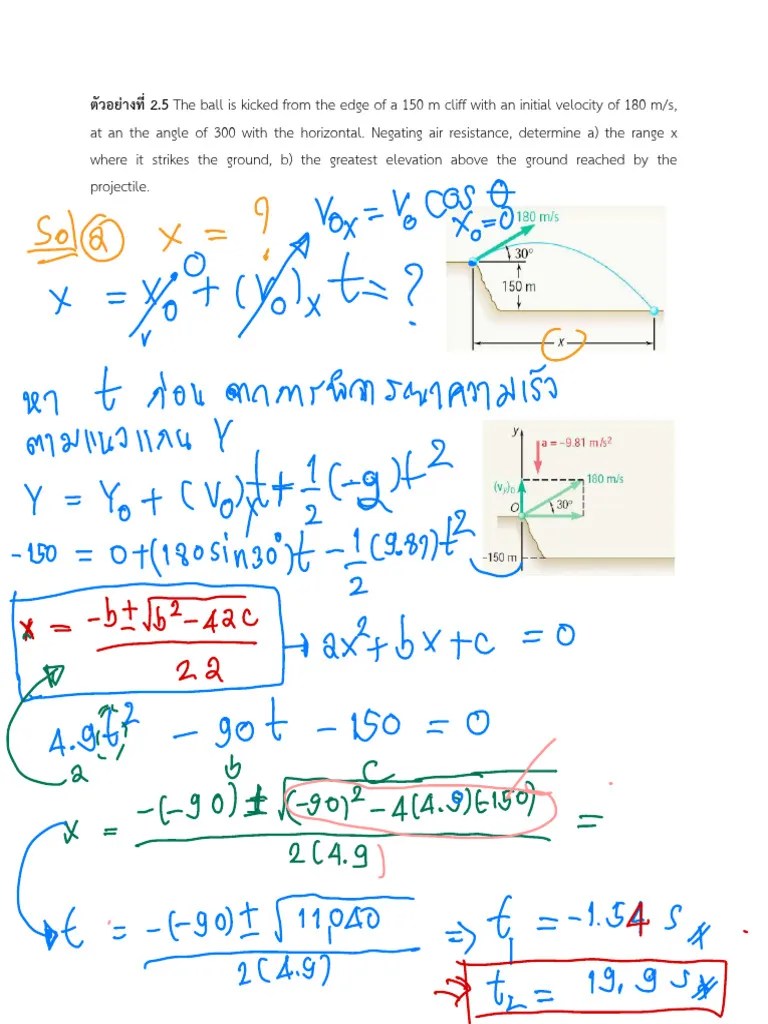 ตัวอย่างที่ 2.5 The ball is kicked from the edge of a 150 m cliff with an initial velocity of 180 m/s,
at an the angle of 300 with the horizontal. Negating air resistance, determine a) the range x
where it strikes the ground, b) the greatest elevation above the ground reached by the
projectile.
Sol a x = ?
V₀ₓ = V₀ cos θ
x₀ = 0
180 m/s
30°
150 m
x
x = x₀ 0 + (V₀)ₓ t = ?
หา t ก่อน จากการพิจารณาความเร็ว
ตามแนวแกน Y
Y = Y₀ + (V₀)ᵧt + 1/2 (-g)t²
-150 = 0 + (180 sin 30°)t - 1/2 (9.81)t²
y
a = −9.81 m/s²
(vᵧ)₀
180 m/s
O
30°
-150 m
x = (-b ± √(b² - 4ac)) / 2a → ax² + bx + c = 0
4.9t² - 90t - 150 = 0
a b c
x = (-(-90) ± √((-90)² - 4(4.9)(-150))) / 2(4.9) =
t = (-(-90) ± √11,040) / 2(4.9) ⇒ t₁ = -1.54 s
t₂ = 19.9 s